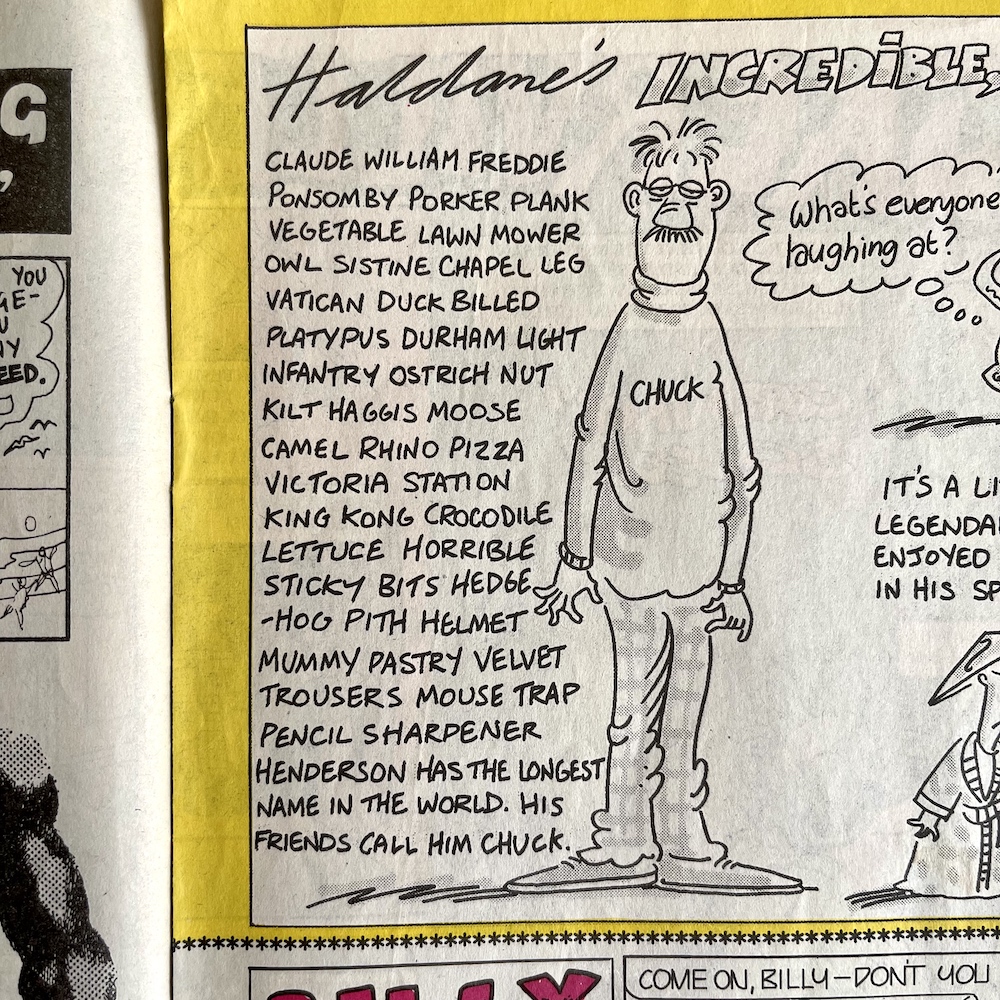 G
,
YOU
GE-
U
MY
EED.
Haldane's INCREDIBLE,
CLAUDE WILLIAM FREDDIE
PONSOMBY PORKER PLANK
VEGETABLE LAWN MOWER
OWL SISTINE CHAPEL LEG
VATICAN DUCK BILLED
PLATYPUS DURHAM LIGHT
INFANTRY OSTRICH NUT
KILT HAGGIS MOOSE
CAMEL RHINO PIZZA
VICTORIA STATION
KING KONG CROCODILE
LETTUCE HORRIBLE
STICKY BITS HEDGE
-HOG PITH HELMET
MUMMY PASTRY VELVET
TROUSERS MOUSE TRAP
PENCIL SHARPENER
HENDERSON HAS THE LONGEST
NAME IN THE WORLD. HIS
FRIENDS CALL HIM CHUCK.
CHUCK
What's everyone
laughing at?
IT'S A LI
LEGENDA
ENJOYED
IN HIS SP
BILLY
COME ON, BILLY—DON'T YOU